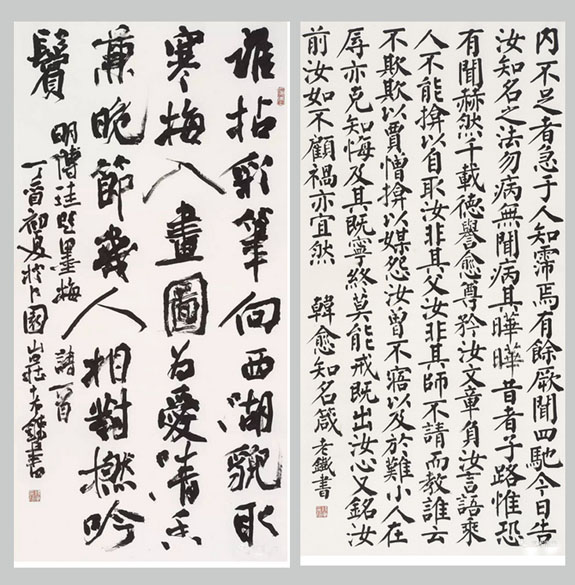 内不足者急于人知霈焉有餘厥聞四馳今日告
汝知名之法勿病無聞病其曄曄昔者子路惟恐
有聞赫然千載德譽愈尊矜汝文章負汝言語乘
人不能揜以自取汝非其父汝非其師不請而教誰云
不欺欺以賈憎揜以媒怨汝曾不寤以及於難小人在
辱亦克知悔及其既寧終莫能戒既出汝心又銘汝
前汝如不顧禍亦宜然 韓愈知名箴 老鐵書
誰拈彩筆向西湖貌取
寒梅入畫圖为愛清香
兼晚節幾人相對撚吟
鬚
明傅珪題墨梅詩一首
丁酉初夏於片園山莊老鐵書